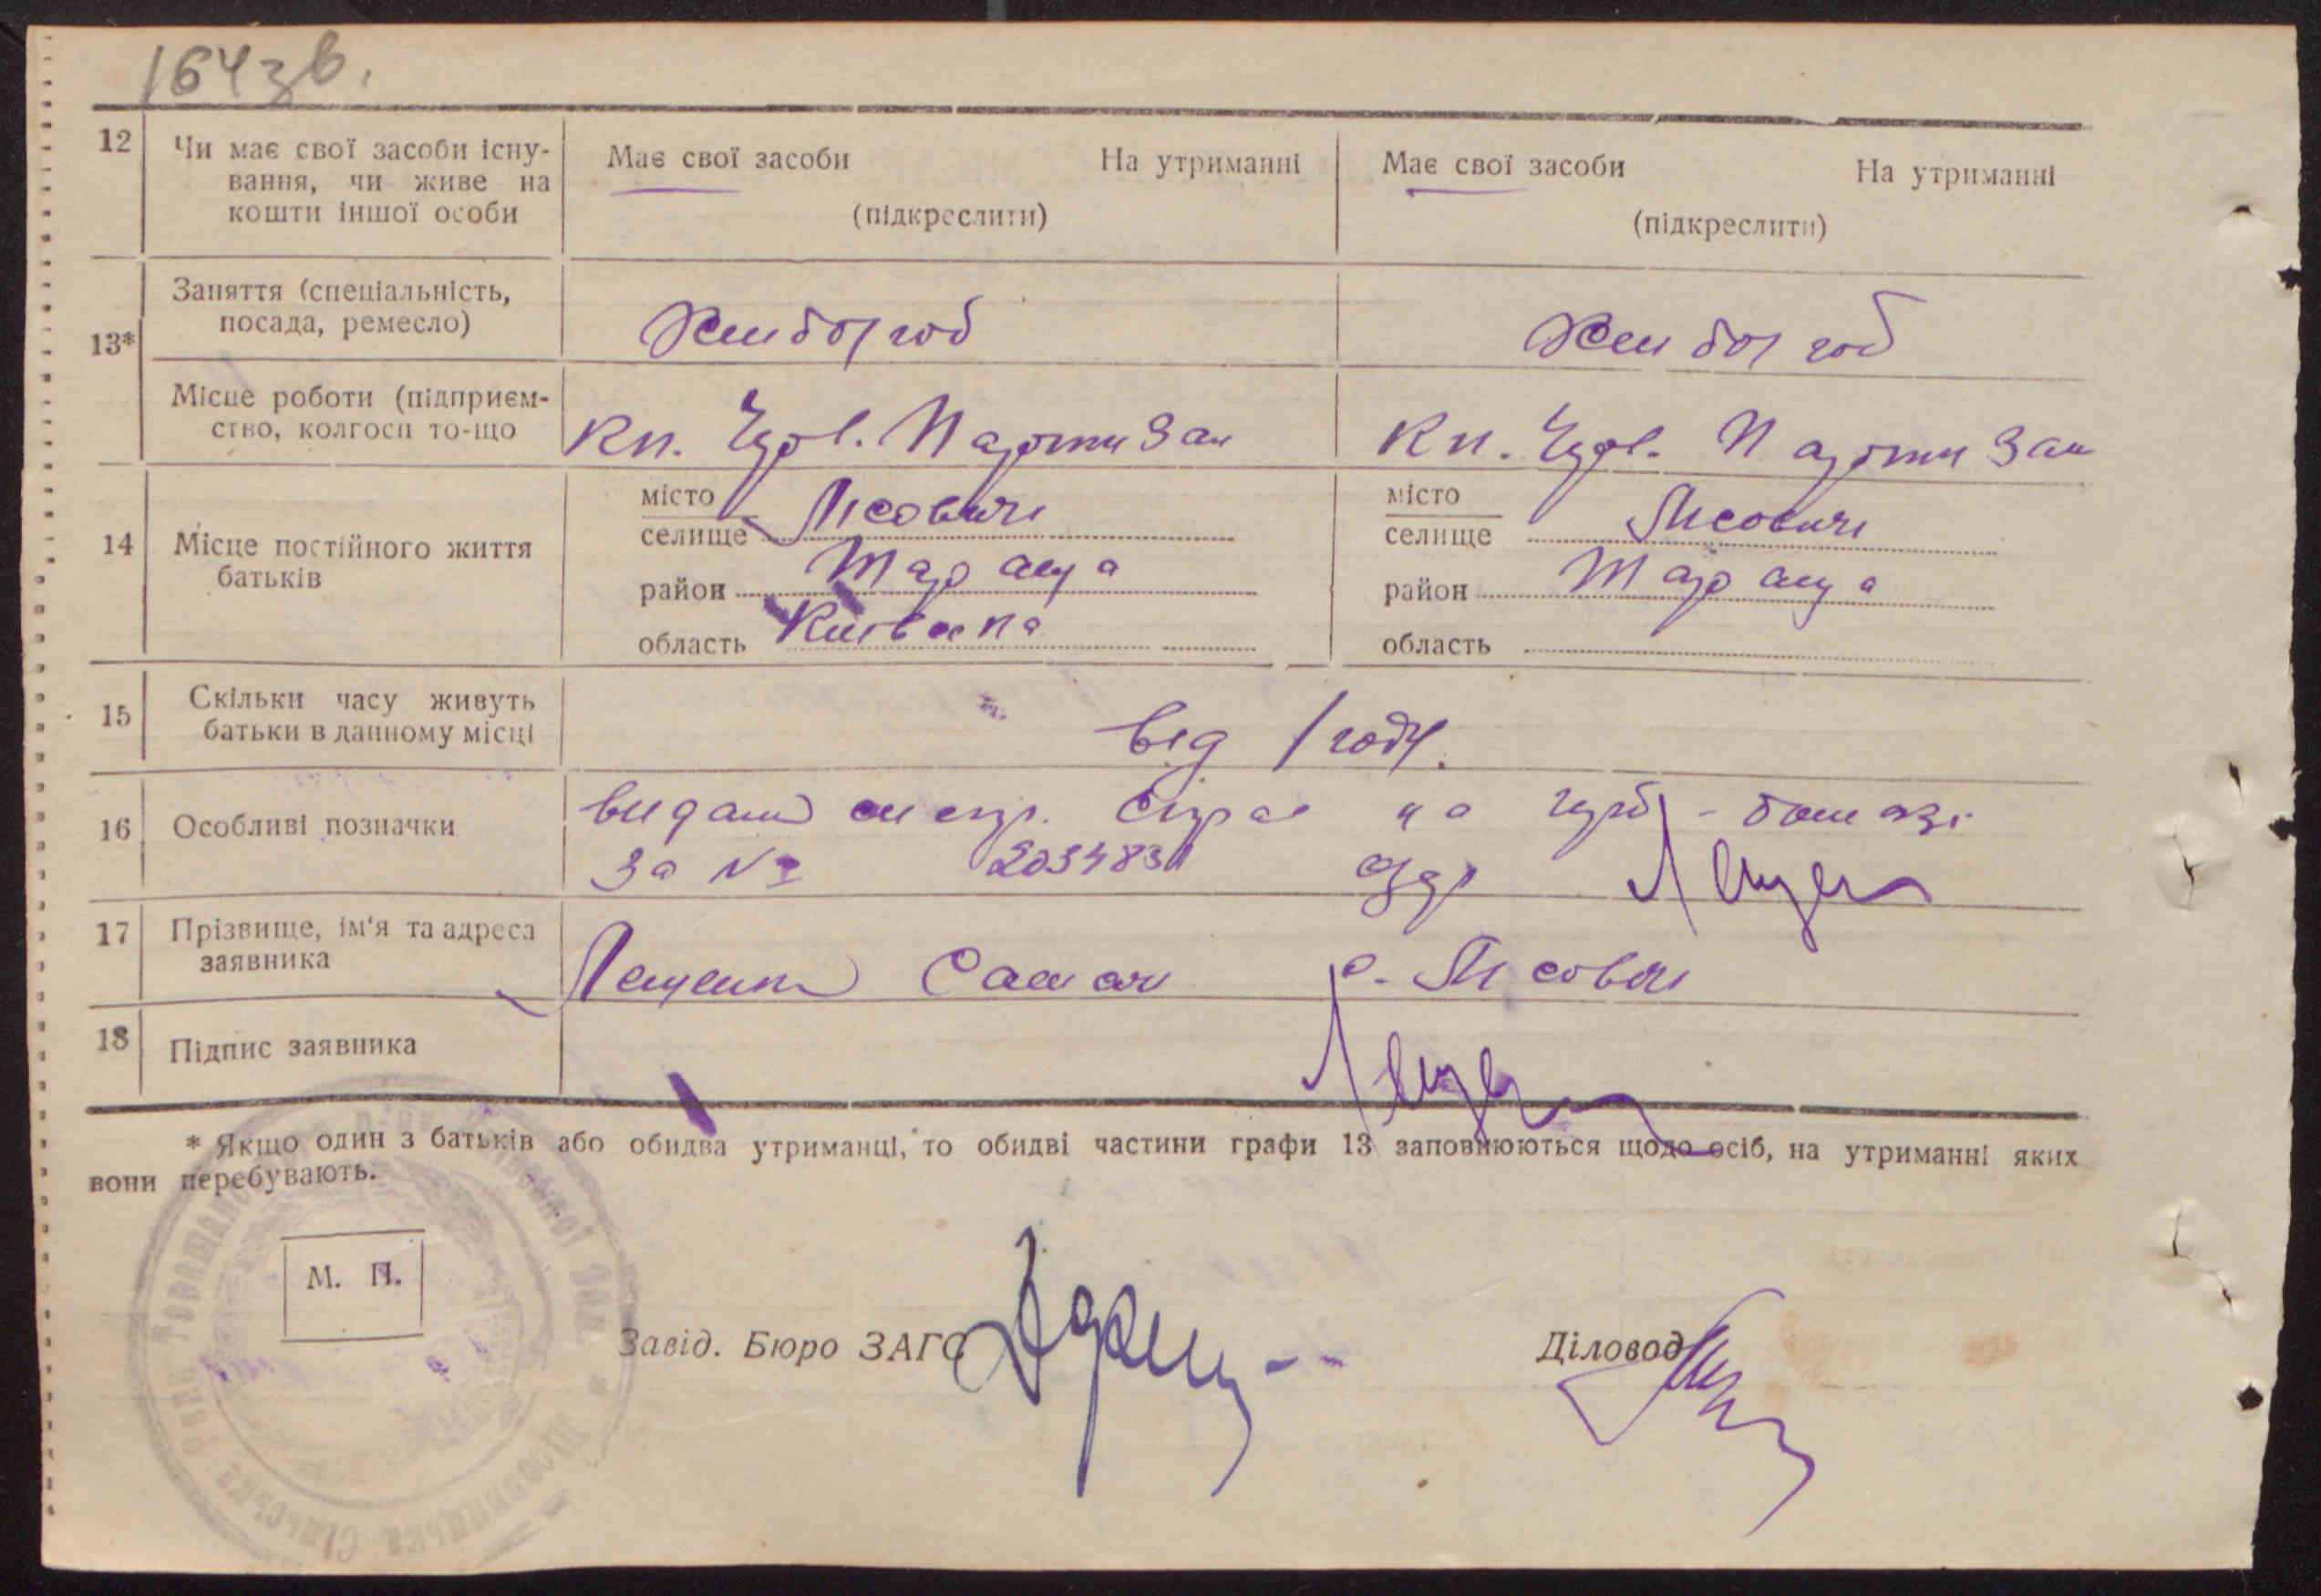 164зв.
12 Чи має свої засоби існу-
вання, чи живе на
кошти іншої особи
Має свої засоби На утриманні
(підкреслити)
Має свої засоби На утриманні
(підкреслити)
13*
Заняття (спеціальність,
посада, ремесло)
Місце роботи (підприєм-
ство, колгосп то-що
Кп. Черв. Партизан
Кп. Черв. Партизан
14 Місце постійного життя
батьків
місто
селище Лісовичі
район Тараща
область Київська
місто
селище Лісовичі
район Тараща
область
15 Скільки часу живуть
батьки в данному місці
від 1 году.
16 Особливі позначки
видано на
за № 2034831
17 Прізвище, ім'я та адреса
заявника
Лещенко с. Лісовичі
18 Підпис заявника
* Якщо один з батьків або обидва утриманці, то обидві частини графи 13 заповнюються щодо осіб, на утриманні яких
вони перебувають.
М. П.
Завід. Бюро ЗАГС
Діловод